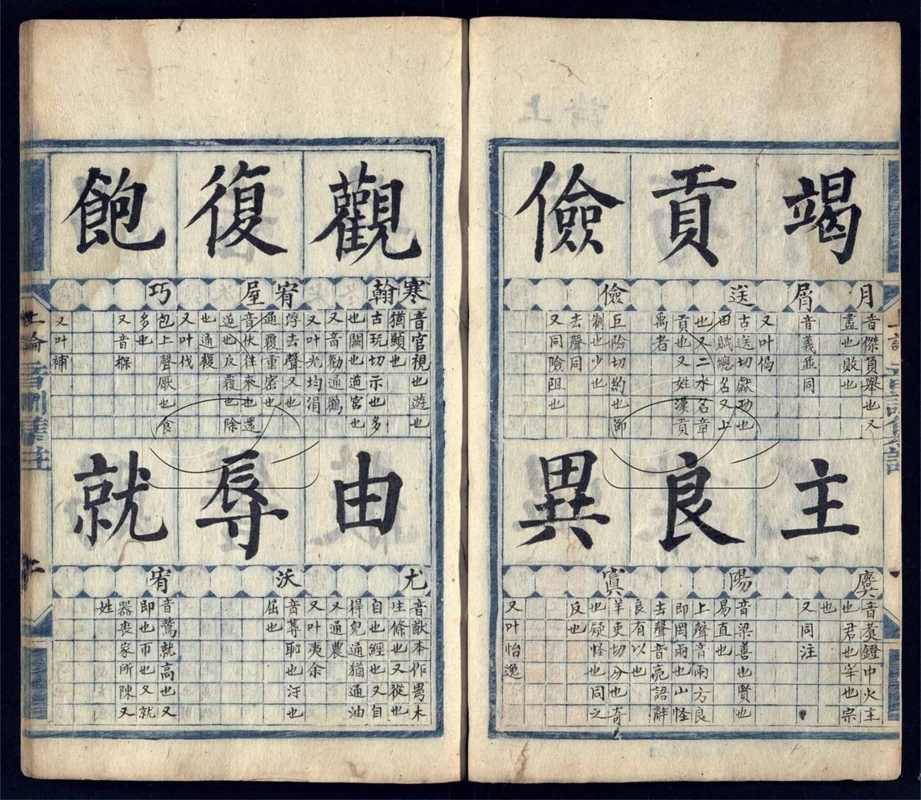 竭貢儉
月 屑 送 儉
音傑負舉也又
盡也敗也
音義並同
又叶偈
古送切獻功也
田賦總名又上
也又二水名章
貢也又姓漢貢
禹者
巨險切約也節
制也少也
去聲同
又同險阻也
主良異
麌 陽 寘
音麈鐙中火主
也君也宰也宗
也
又同注
音梁善也賢也
易直也
上聲音兩方良
即罔兩也山怪
去聲音亮語辭
良有以也
羊吏切分也奇
也疑怪也同之
反也
又叶怡逸
觀復飽
寒 翰 宥 屋 巧
音官視也遊也
猶顯也
古玩切示也多
也闕也道宮也
又音勸通鸛
又叶光均涓
浮去聲又也
通覆重密也
音伏往來也還
返也反覆也除
也通複
又叶伐
包上聲厭也食
多也
又音
又叶補
由辱就
尤 沃 宥
音猷本作甹木
生條也又從也
自也經也又自
得皃通猶通油
又通農
又叶夷余
音蓐恥也汙也
屈也
音鷲就高也又
即也帀也又就
器喪家所陳又
姓
上論
音訓集註